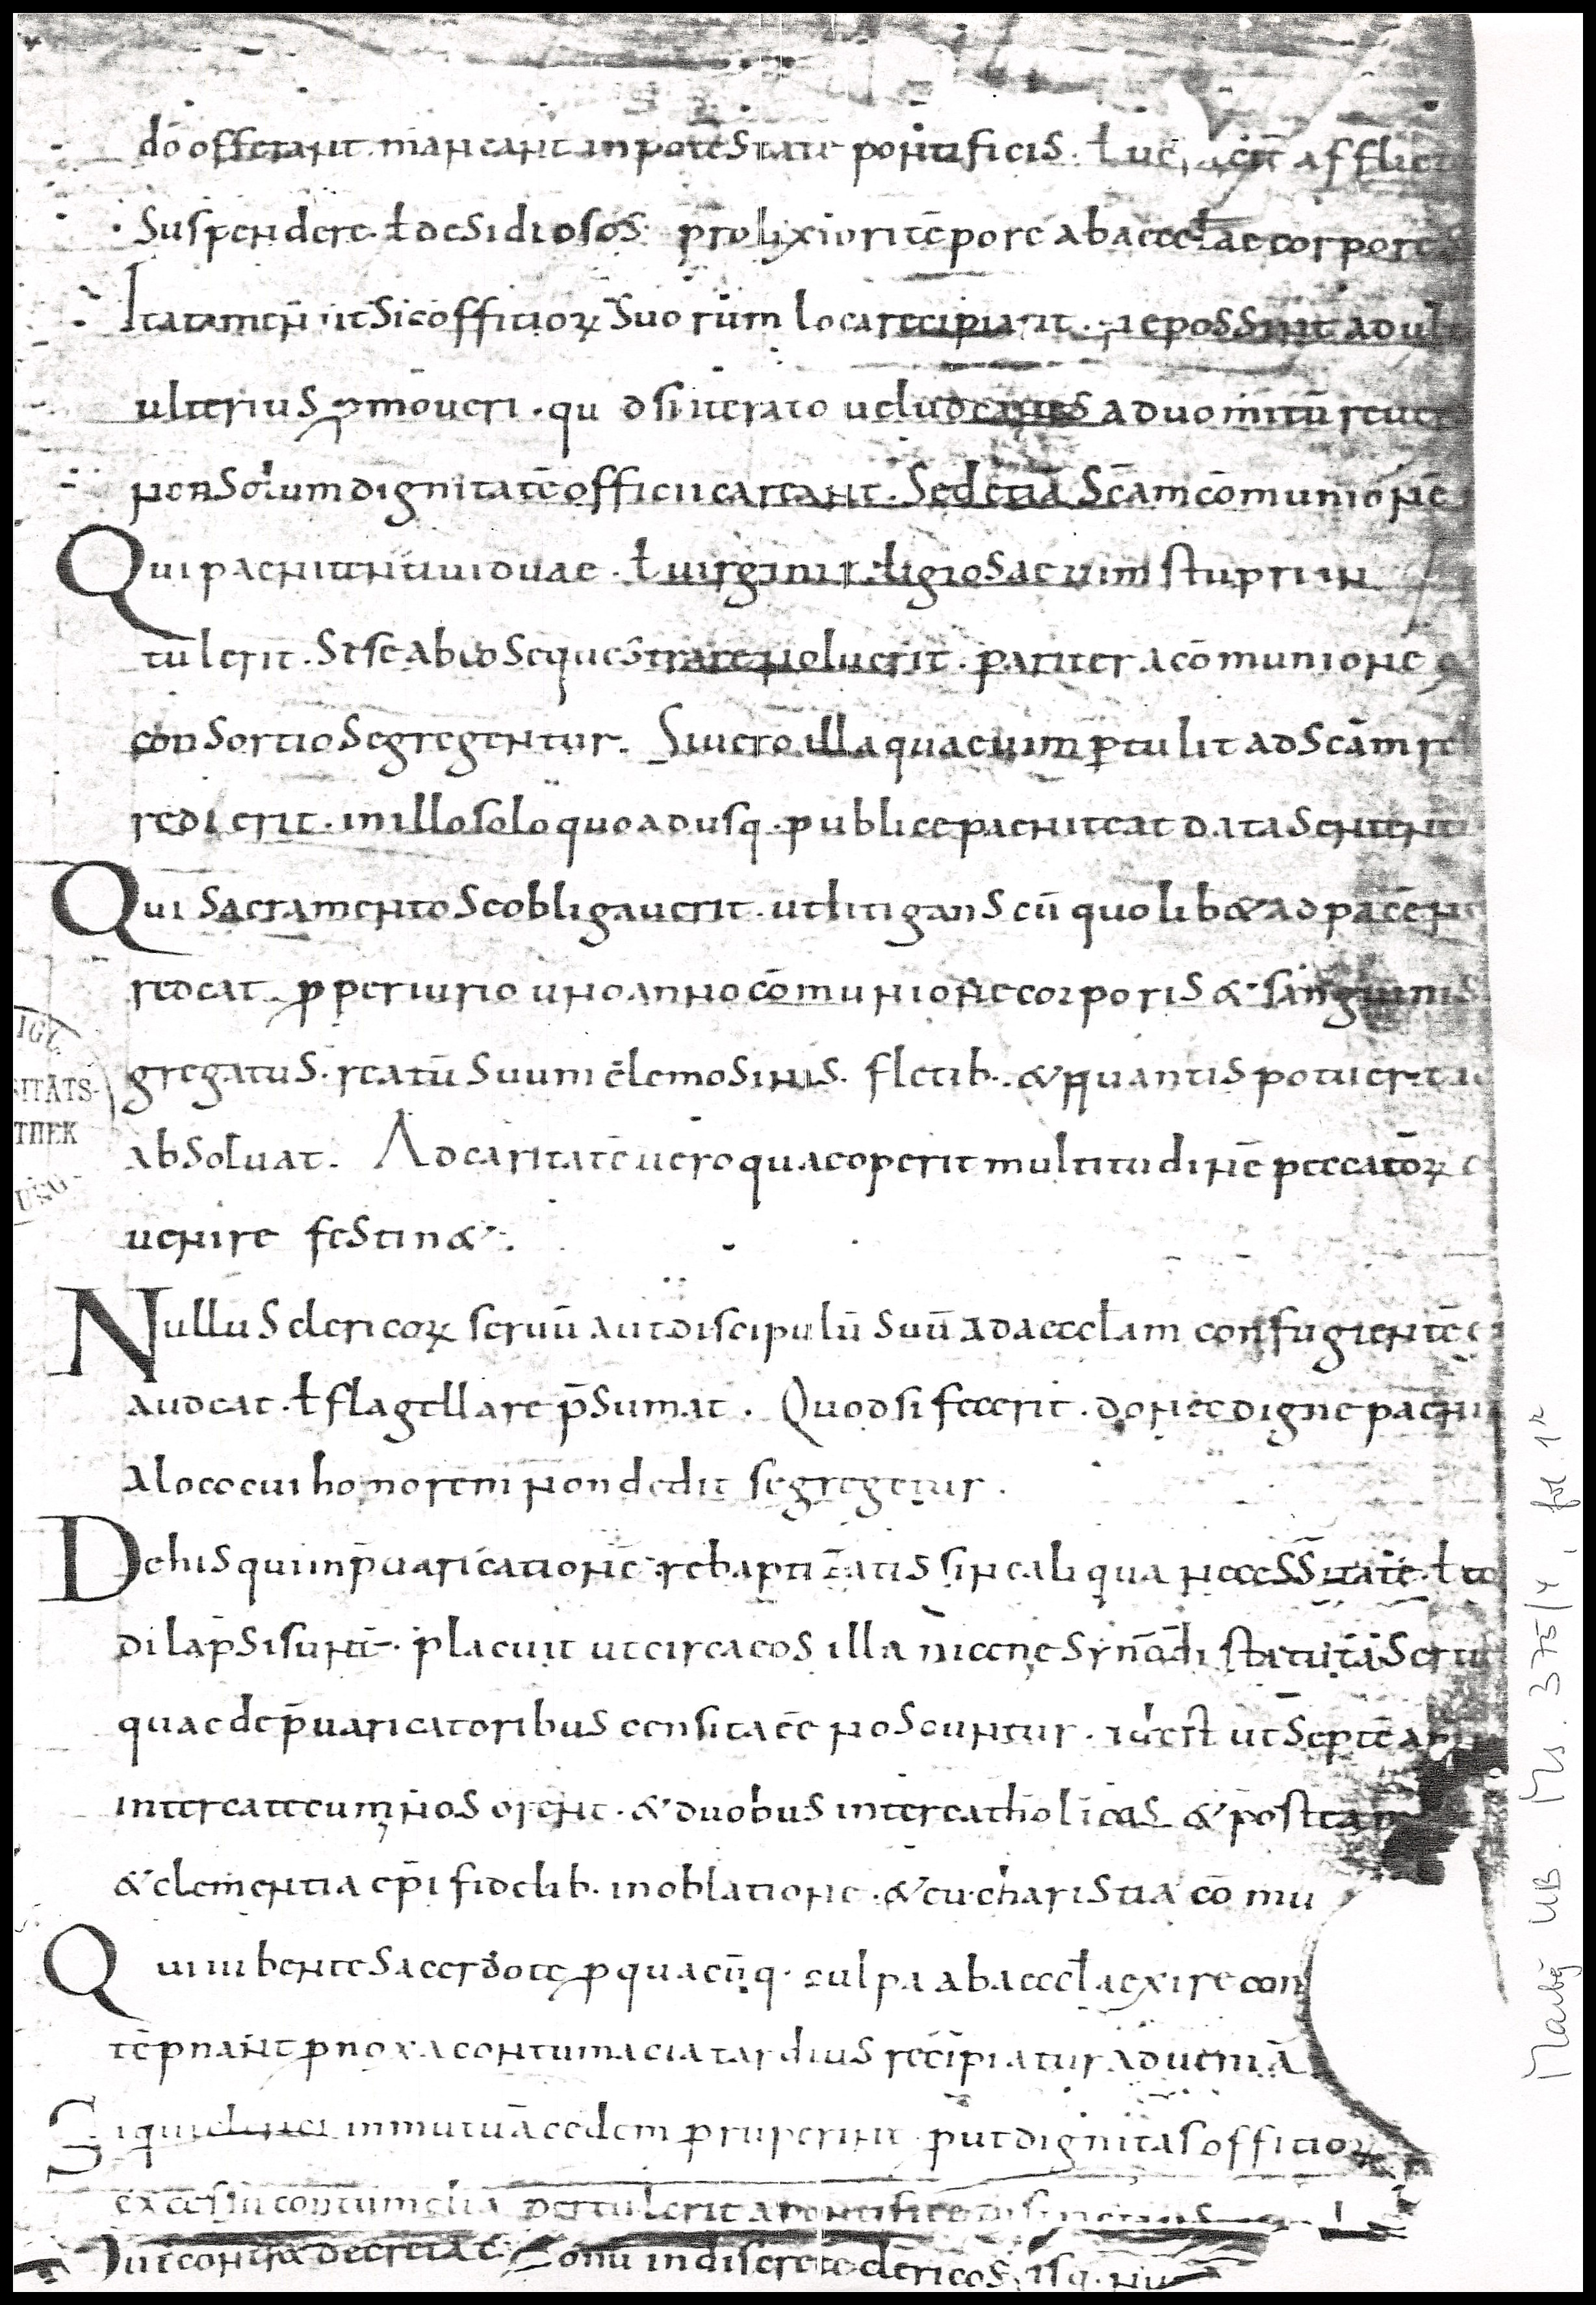 dō offerant maneant in potestate pontificis. ł uc afflict
suspendere. ł desidiosos prolixiori tēpore ab aeccłae corpore
Ita tamen ut sic offitioꝝ suorum loca recipiant. ne possint ad
ulterius ꝓmoveri. qu dsi iterato velud canes ad vomitū reve
non solum dignitatē officii careant. Sed etiā scām cōmunionē
Qui paenitenti viduae. ł virgini religiosae vim stupri in
tulerit. Si se ab eo sequestrare noluerit. pariter a cōmunione &
consortio segregentur. Si vero illa quae vim ꝑtulit ad scām re
redierit. in illo solo quoadusq. publice paeniteat data sententi
Qui sacramento se obligaverit. ut litigans cū quolib& ad pacē n
redeat. ꝓ periurio uno anno cōmunione corporis & sanguinis
gregatus. reatū suum elemosinis. fletib. & quantis potuerit
absolvat. Ad caritatē vero quae operit multitudinē peccatōꝝ
venire festin&.
Nullus clericoꝝ servū aut discipulū suū ad aeccłam confugientē
audeat. ł flagellare p̄sumat. Quod si fecerit. donec digne paeni
a loco cui honorem non dedit segregetur.
De his qui in p̄varicatione rebaptizatis sine aliqua necessitate. ł
dilapsi sunt. placuit ut circa eos illa nicene synodi statuta
quae de p̄varicatoribus censita eē noscuntur. id est ut septē an
inter catecumenos orent. & duobus inter catholicos & postea
& clementia ep̄i fidelib. in oblatione. & eucharistia cō mu
Qui iubente sacerdote ꝓ quacūq. culpa ab aeccła exire con
tēpnant ꝓ noxa contumacia tardius recipiatur ad veniā
Si qui clerici in mutuā cedem pruperint put dignitas offitioꝝ
excessu contumelia pertulerit a pontifice
indiscrete clericos
IGL.
SITÄTS-
THEK
Marbg UB. Ms. 375/4, fol. 1r